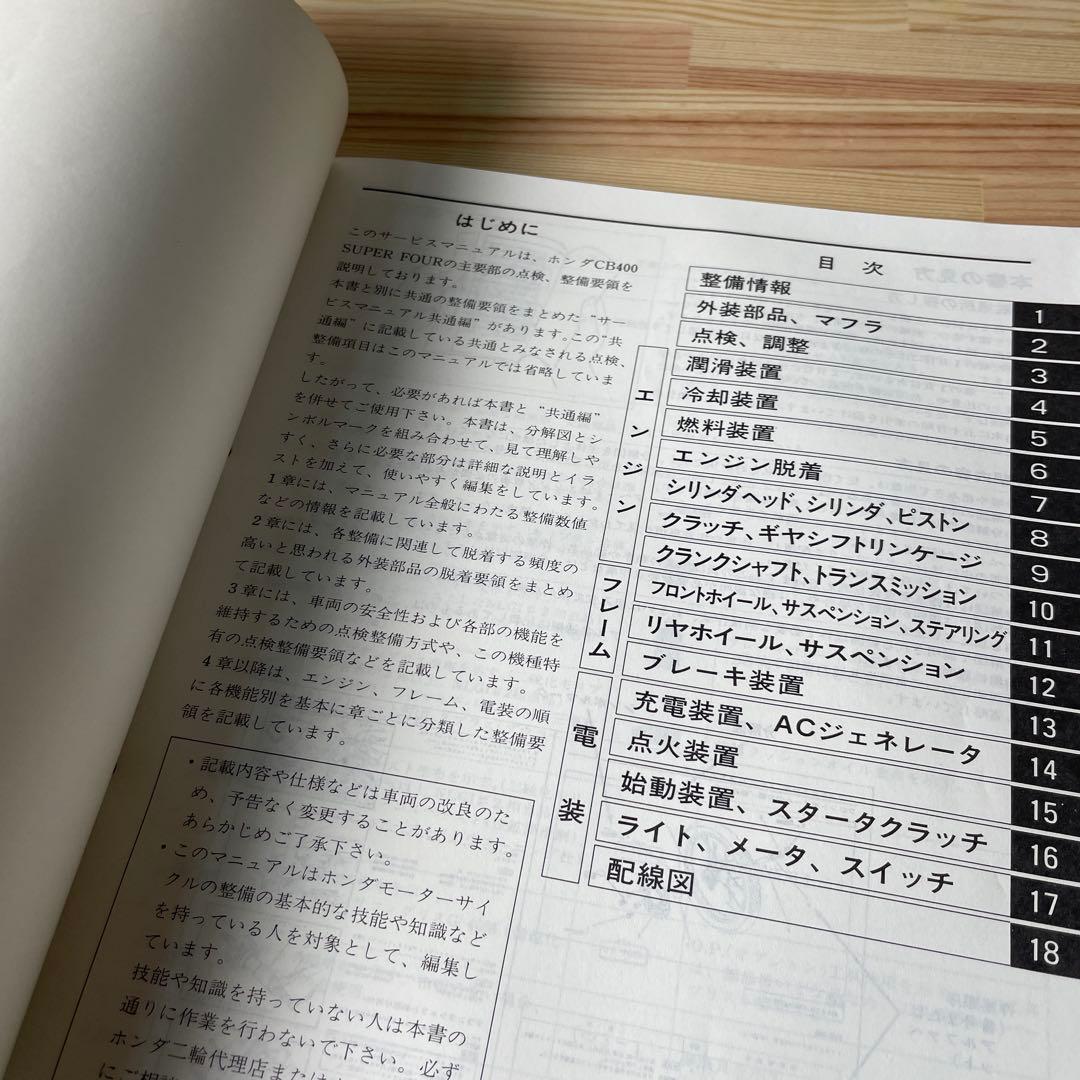 はじめに
このサービスマニュアルは、ホンダCB400
SUPER FOURの主要部の点検、整備要領を
説明しております。
本書と別に共通の整備要領をまとめた“サー
ビスマニュアル共通編”があります。この“共
通編”に記載している共通とみなされる点検、
整備項目はこのマニュアルでは省略していま
す。
したがって、必要があれば本書と“共通編”
を併せてご使用下さい。本書は、分解図とシ
ンボルマークを組み合わせて、見て理解しや
すく、さらに必要な部分は詳細な説明とイラ
ストを加えて、使いやすく編集をしています。
1章には、マニュアル全般にわたる整備数値
などの情報を記載しています。
2章には、各整備に関連して脱着する頻度の
高いと思われる外装部品の脱着要領をまとめ
て記載しています。
3章には、車両の安全性および各部の機能を
維持するための点検整備方式や、この機種特
有の点検整備要領などを記載しています。
4章以降は、エンジン、フレーム、電装の順
に各機能別を基本に章ごとに分類した整備要
領を記載しています。
・記載内容や仕様などは車両の改良のた
め、予告なく変更することがあります。
あらかじめご了承下さい。
・このマニュアルはホンダモーターサイ
クルの整備の基本的な技能や知識など
を持っている人を対象として、編集し
ています。
技能や知識を持っていない人は本書の
通りに作業を行わないで下さい。必ず
ホンダ二輪代理店または
にご相談
目次
整備情報 1
外装部品、マフラ 2
点検、調整 3
エンジン
潤滑装置 4
冷却装置 5
燃料装置 6
エンジン脱着 7
シリンダヘッド、シリンダ、ピストン 8
クラッチ、ギヤシフトリンケージ 9
クランクシャフト、トランスミッション 10
フレーム
フロントホイール、サスペンション、ステアリング 11
リヤホイール、サスペンション 12
ブレーキ装置 13
電装
充電装置、ACジェネレータ 14
点火装置 15
始動装置、スタータクラッチ 16
ライト、メータ、スイッチ 17
配線図 18